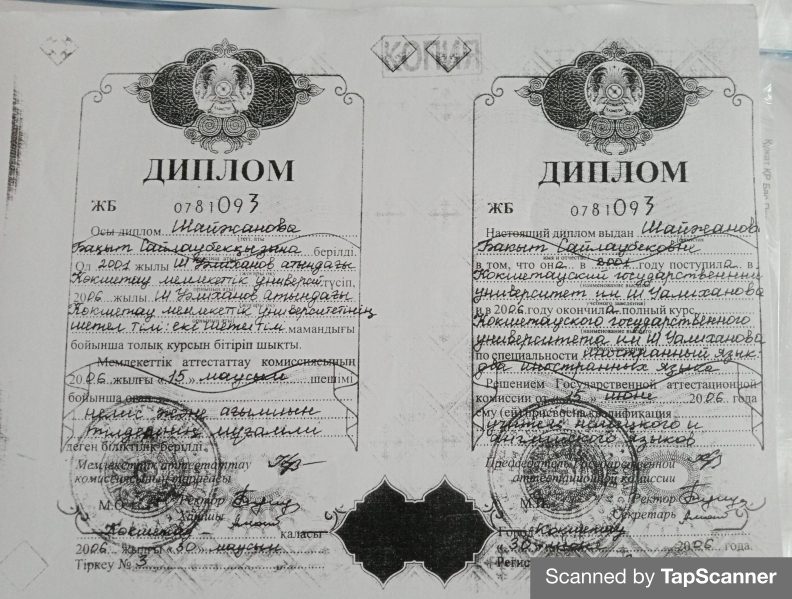 КОПИЯ
ДИПЛОМ
ЖБ 0781093
Осы диплом Шайжанова
Бақыт Сайлаубекқызына берілді.
Ол 2001 жылы Ш Уәлиханов атындағы
Көкшетау мемлекеттік университ түсіп,
2006 жылы Ш Уәлиханов атындағы
Көкшетау мемлекеттік университетінің
шетел тілі: екі шетел тілі мамандығы
бойынша толық курсын бітіріп шықты.
Мемлекеттік аттестаттау комиссиясының
2006 жылғы «15» маусым шешімі
бойынша оған
неміс және ағылшын
тілдерінің мұғалімі
деген біліктілік берілді.
Мемлекеттік аттестаттау
комиссиясының төрағасы
М.О. Ректор
Хатшы
Көкшетау қаласы
2006 жылғы «30» маусым
Тіркеу № 3
ДИПЛОМ
ЖБ 0781093
Настоящий диплом выдан Шайжанова
Бакыт Сайлаубековне
в том, что она в году поступила в
Кокшетауский государственный
университет им Ш Уалиханова
и в 2006 году окончила полный курс
Кокшетауского государственного
университета им Ш Уалиханова
по специальности иностранный язык:
два иностранных языка
Решением Государственной аттестационной
комиссии от «15» июня 2006 года
ему (ей) присвоена квалификация
учитель немецкого и
английского языков
Председатель Государственной
аттестационной комиссии
М.П. Ректор
Секретарь
Город Кокшетау
«30» 2006 года.
Scanned by TapScanner